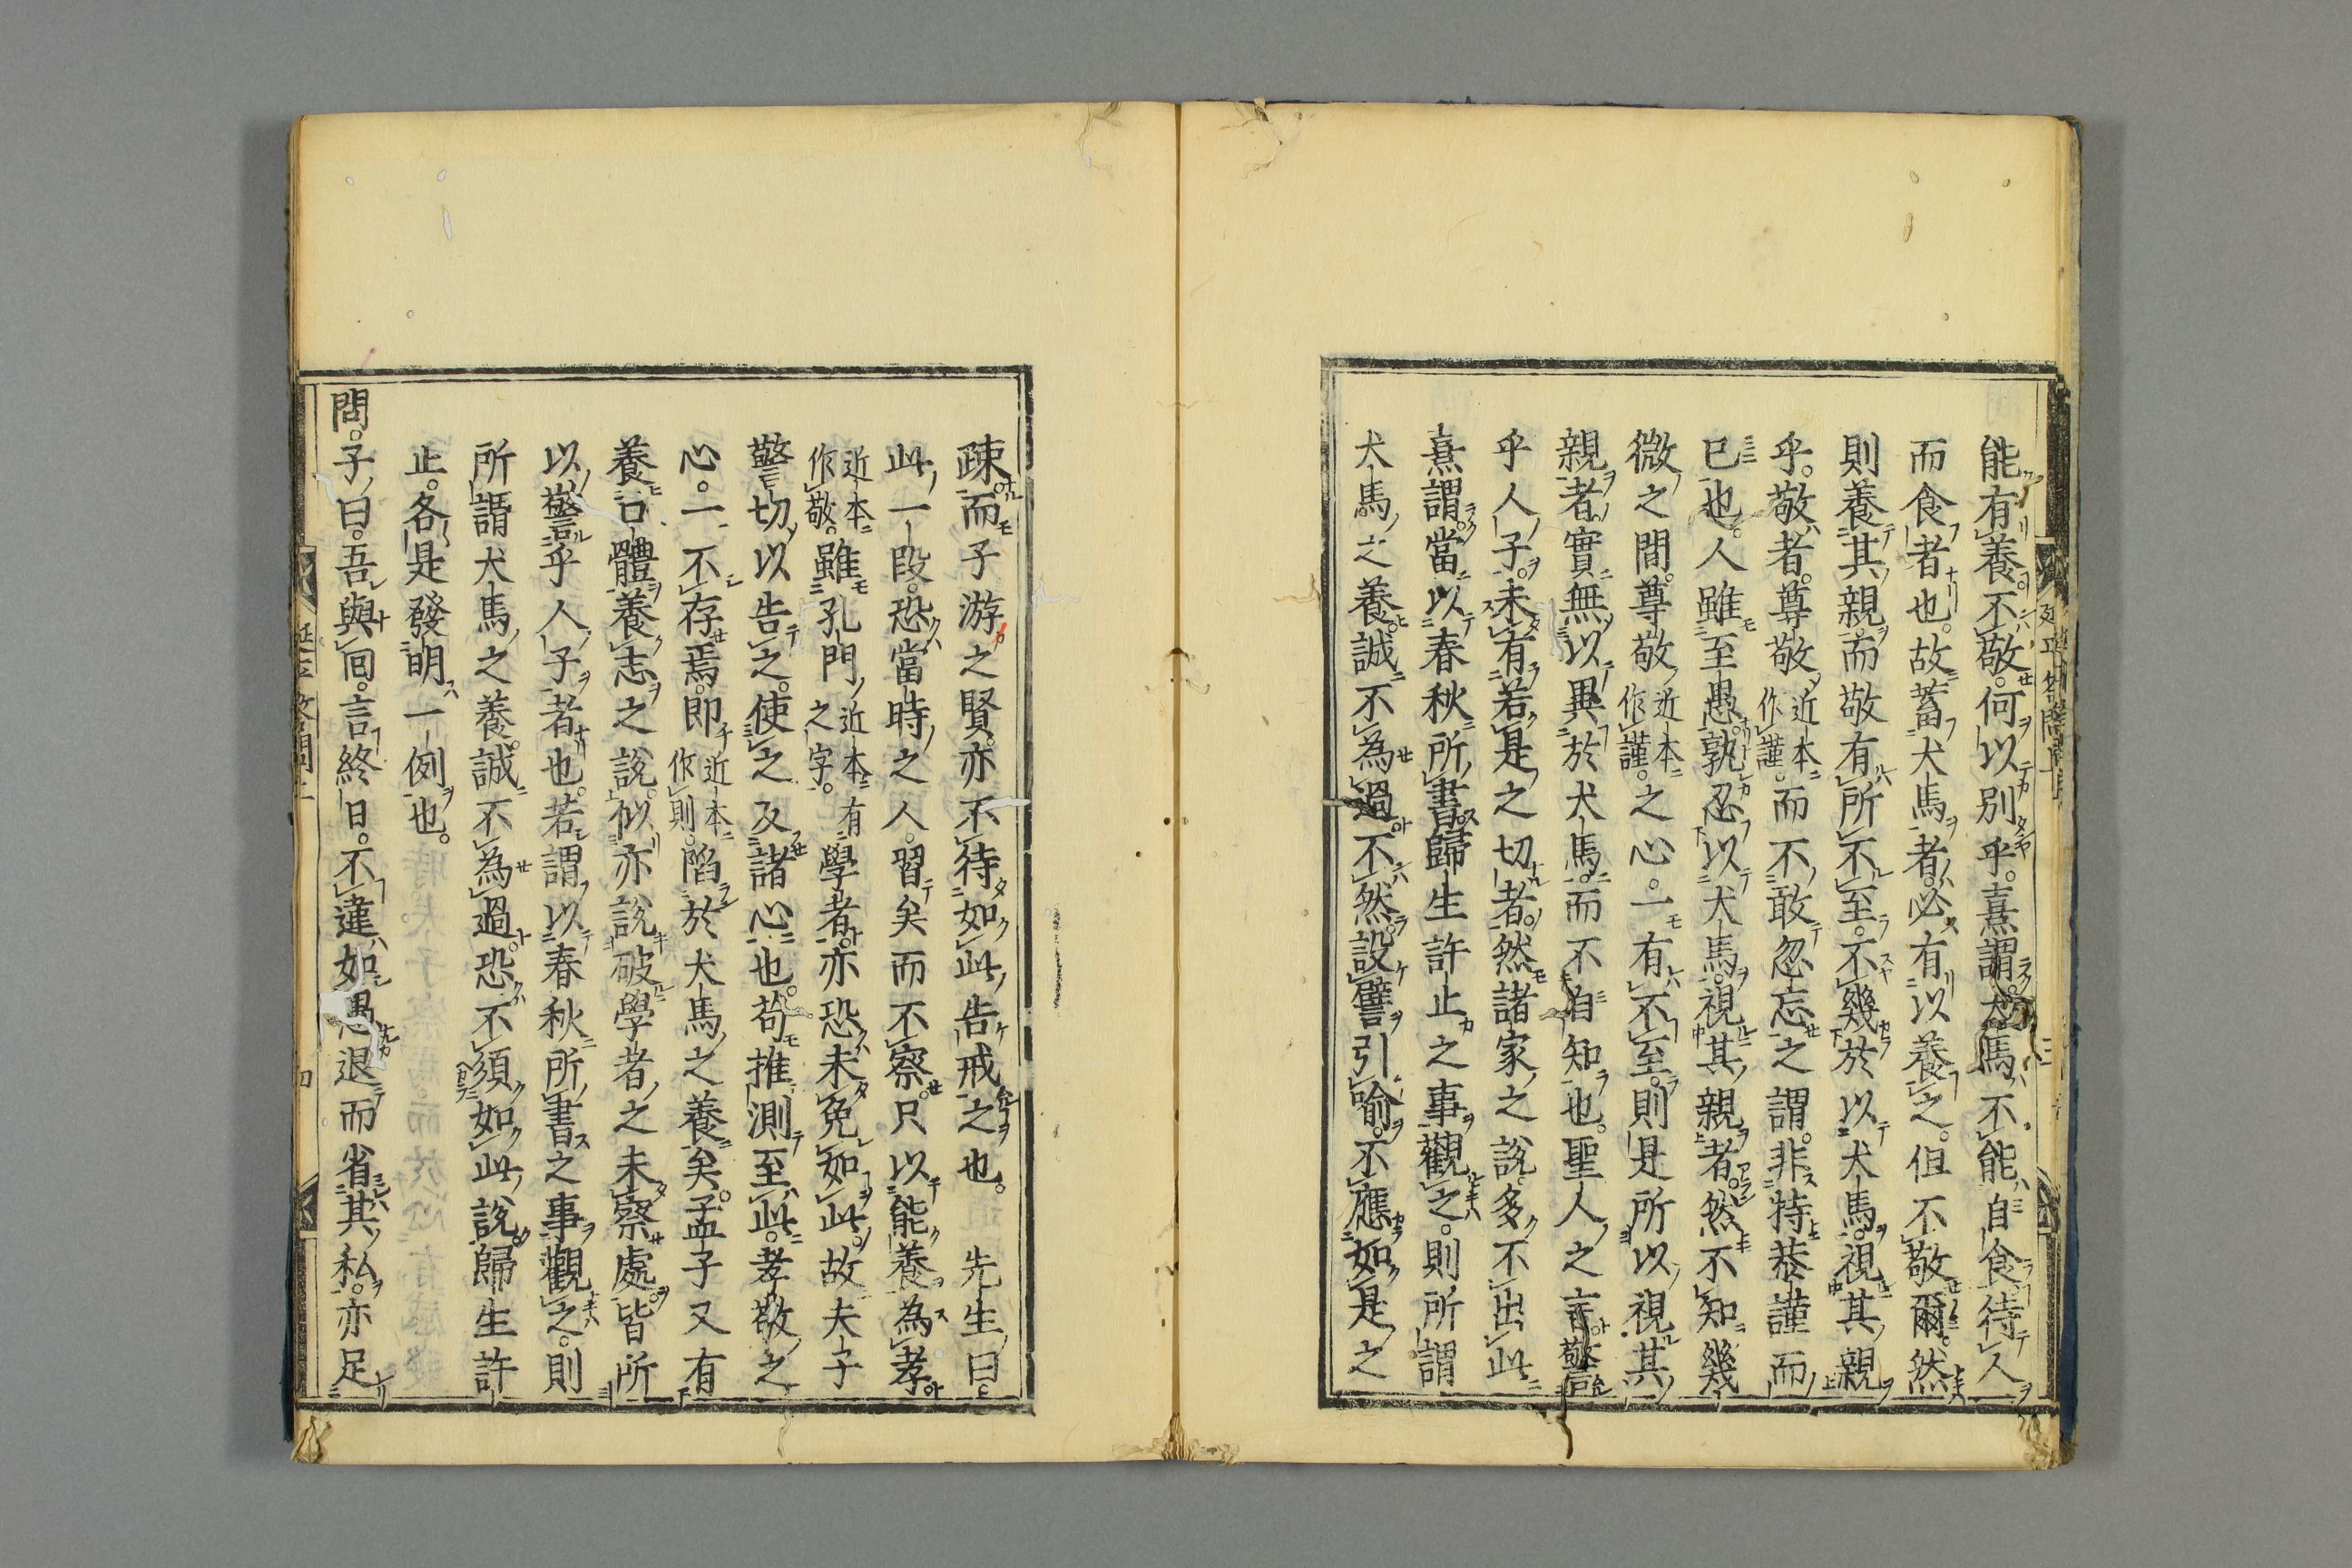 能有養。不敬。何以別乎。熹謂。犬馬不能自食。待人
而食者也。故蓄犬馬者。必有以養之。但不敬爾。然
則養其親。而敬有所不至。不幾於以犬馬。視其親
乎。敬者。尊敬近本作謹。而不敢忽忘之謂。非特恭謹而
已也。人雖至愚。孰忍以犬馬。視其親者。然不知幾
微之間。尊敬近本作謹。之心。一有不至。則是所以視其
親者。實無以異於犬馬。而不自知也。聖人之言警
乎人子。未有若是之切者。然諸家之說。多不出此
熹謂。當以春秋所書歸生許止之事觀之。則所謂
犬馬之養。誠不為過。不然。設譬引喻。不應如是之
疎。而子游之賢。亦不待如此告戒之也。 先生曰
此一段。恐當時之人。習矣而不察。只以能養為孝
近本作敬。雖孔門近本有之字。學者。亦恐未免如此。故夫子
警切以告之。使之反諸心也。苟推測至此。孝敬之
心。一不存焉。即近本作則。陷於犬馬之養矣。孟子又有
養口體養志之說。似亦說破學者之未察處。皆所
以警乎人子者也。若謂以春秋所書之事觀之。則
所謂犬馬之養。誠不為過。恐不須如此說。歸生許
止。各是發明一例也。
問。子曰。吾與回。言終日。不違如愚。退而省其私。亦足
延平答問上
三
延平答問上
四